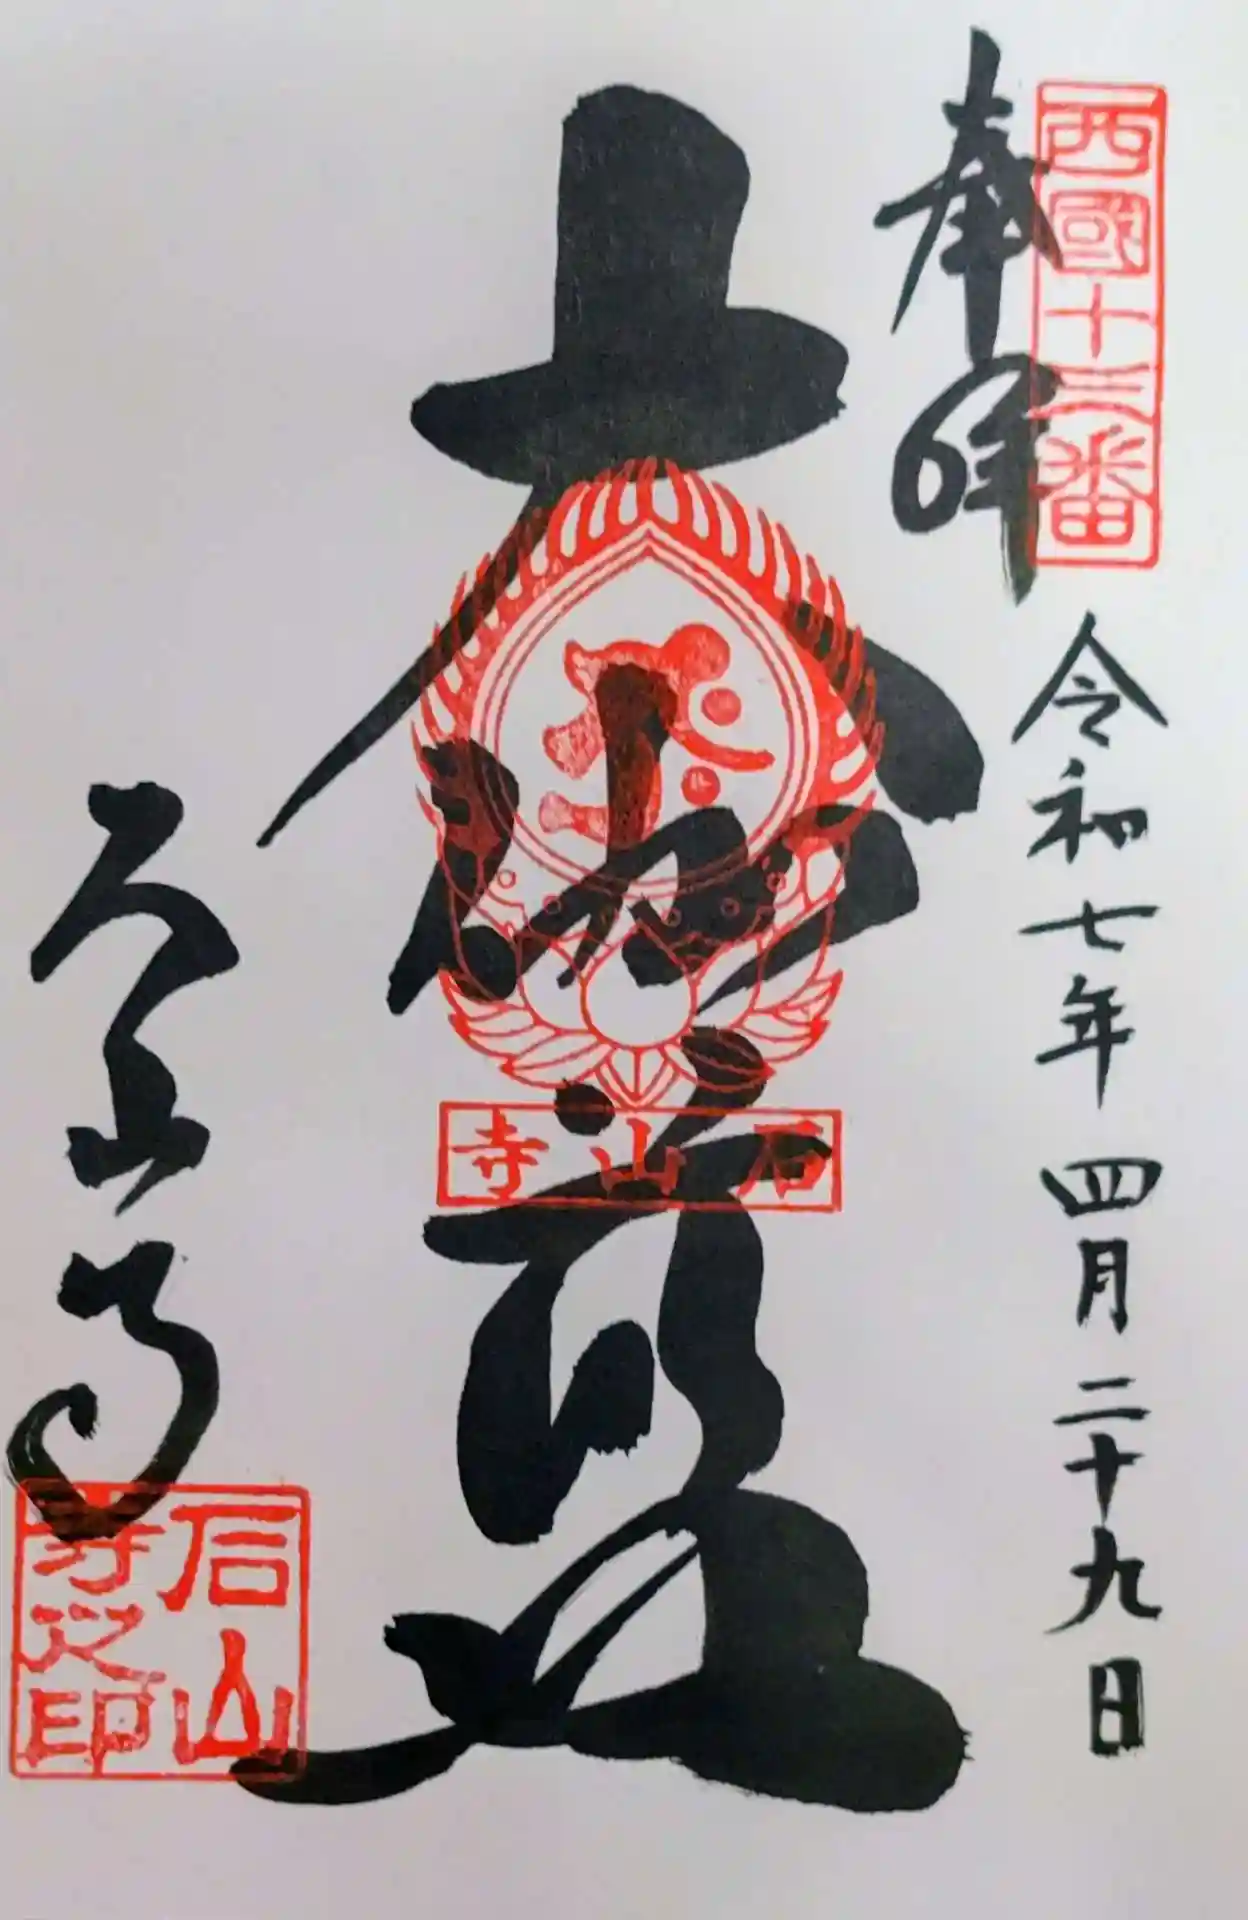 西國十三番
奉拝
令和七年四月二十九日
大伽藍
石山寺
石山寺
石山寺之印